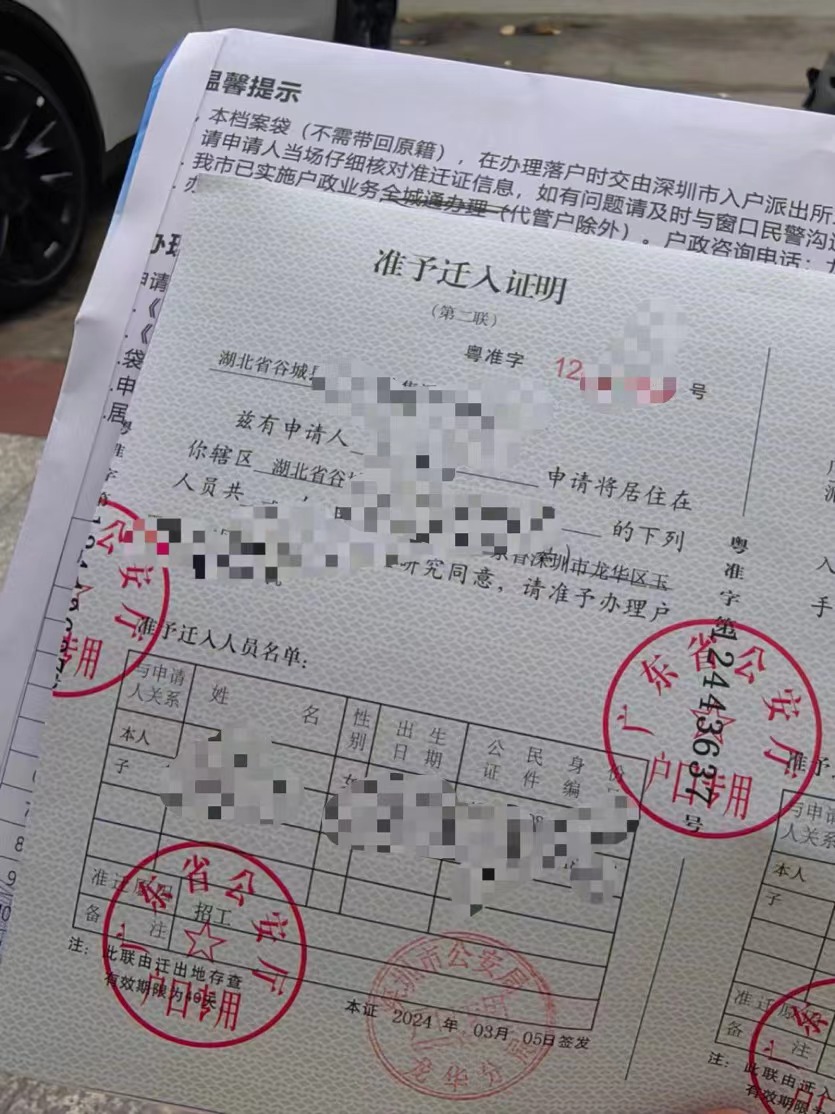 温馨提示
本档案袋（不需带回原籍），在办理落户时交由深圳市入户派出所
请申请人当场仔细核对准迁证信息，如有问题请及时与窗口民警沟
我市已实施户政业务全城通办理（代管户除外）。户政咨询电话：
准予迁入证明
（第二联）
粤准字 12 号
湖北省谷城
兹有申请人 申请将居住在
你辖区 湖北省谷 的下列
人员共
省深圳市龙华区玉
研究同意，请准予办理户
准予迁入人员名单：
与申请人关系 姓名 性别 出生日期 公民身份证件编
本人
子
准迁
招工
备注
注：此联由迁出地存查
有效期限为40天
本证 2024 年 03月 05日签发
广东省公安厅
户口专用
广东省公安厅
户口专用
深圳市公安局
龙华分局
粤准字第12443637号
公安厅
专用
粤准字第
与申请
人关系
本人
子
准迁
备注
注：此联由迁入
有效期限